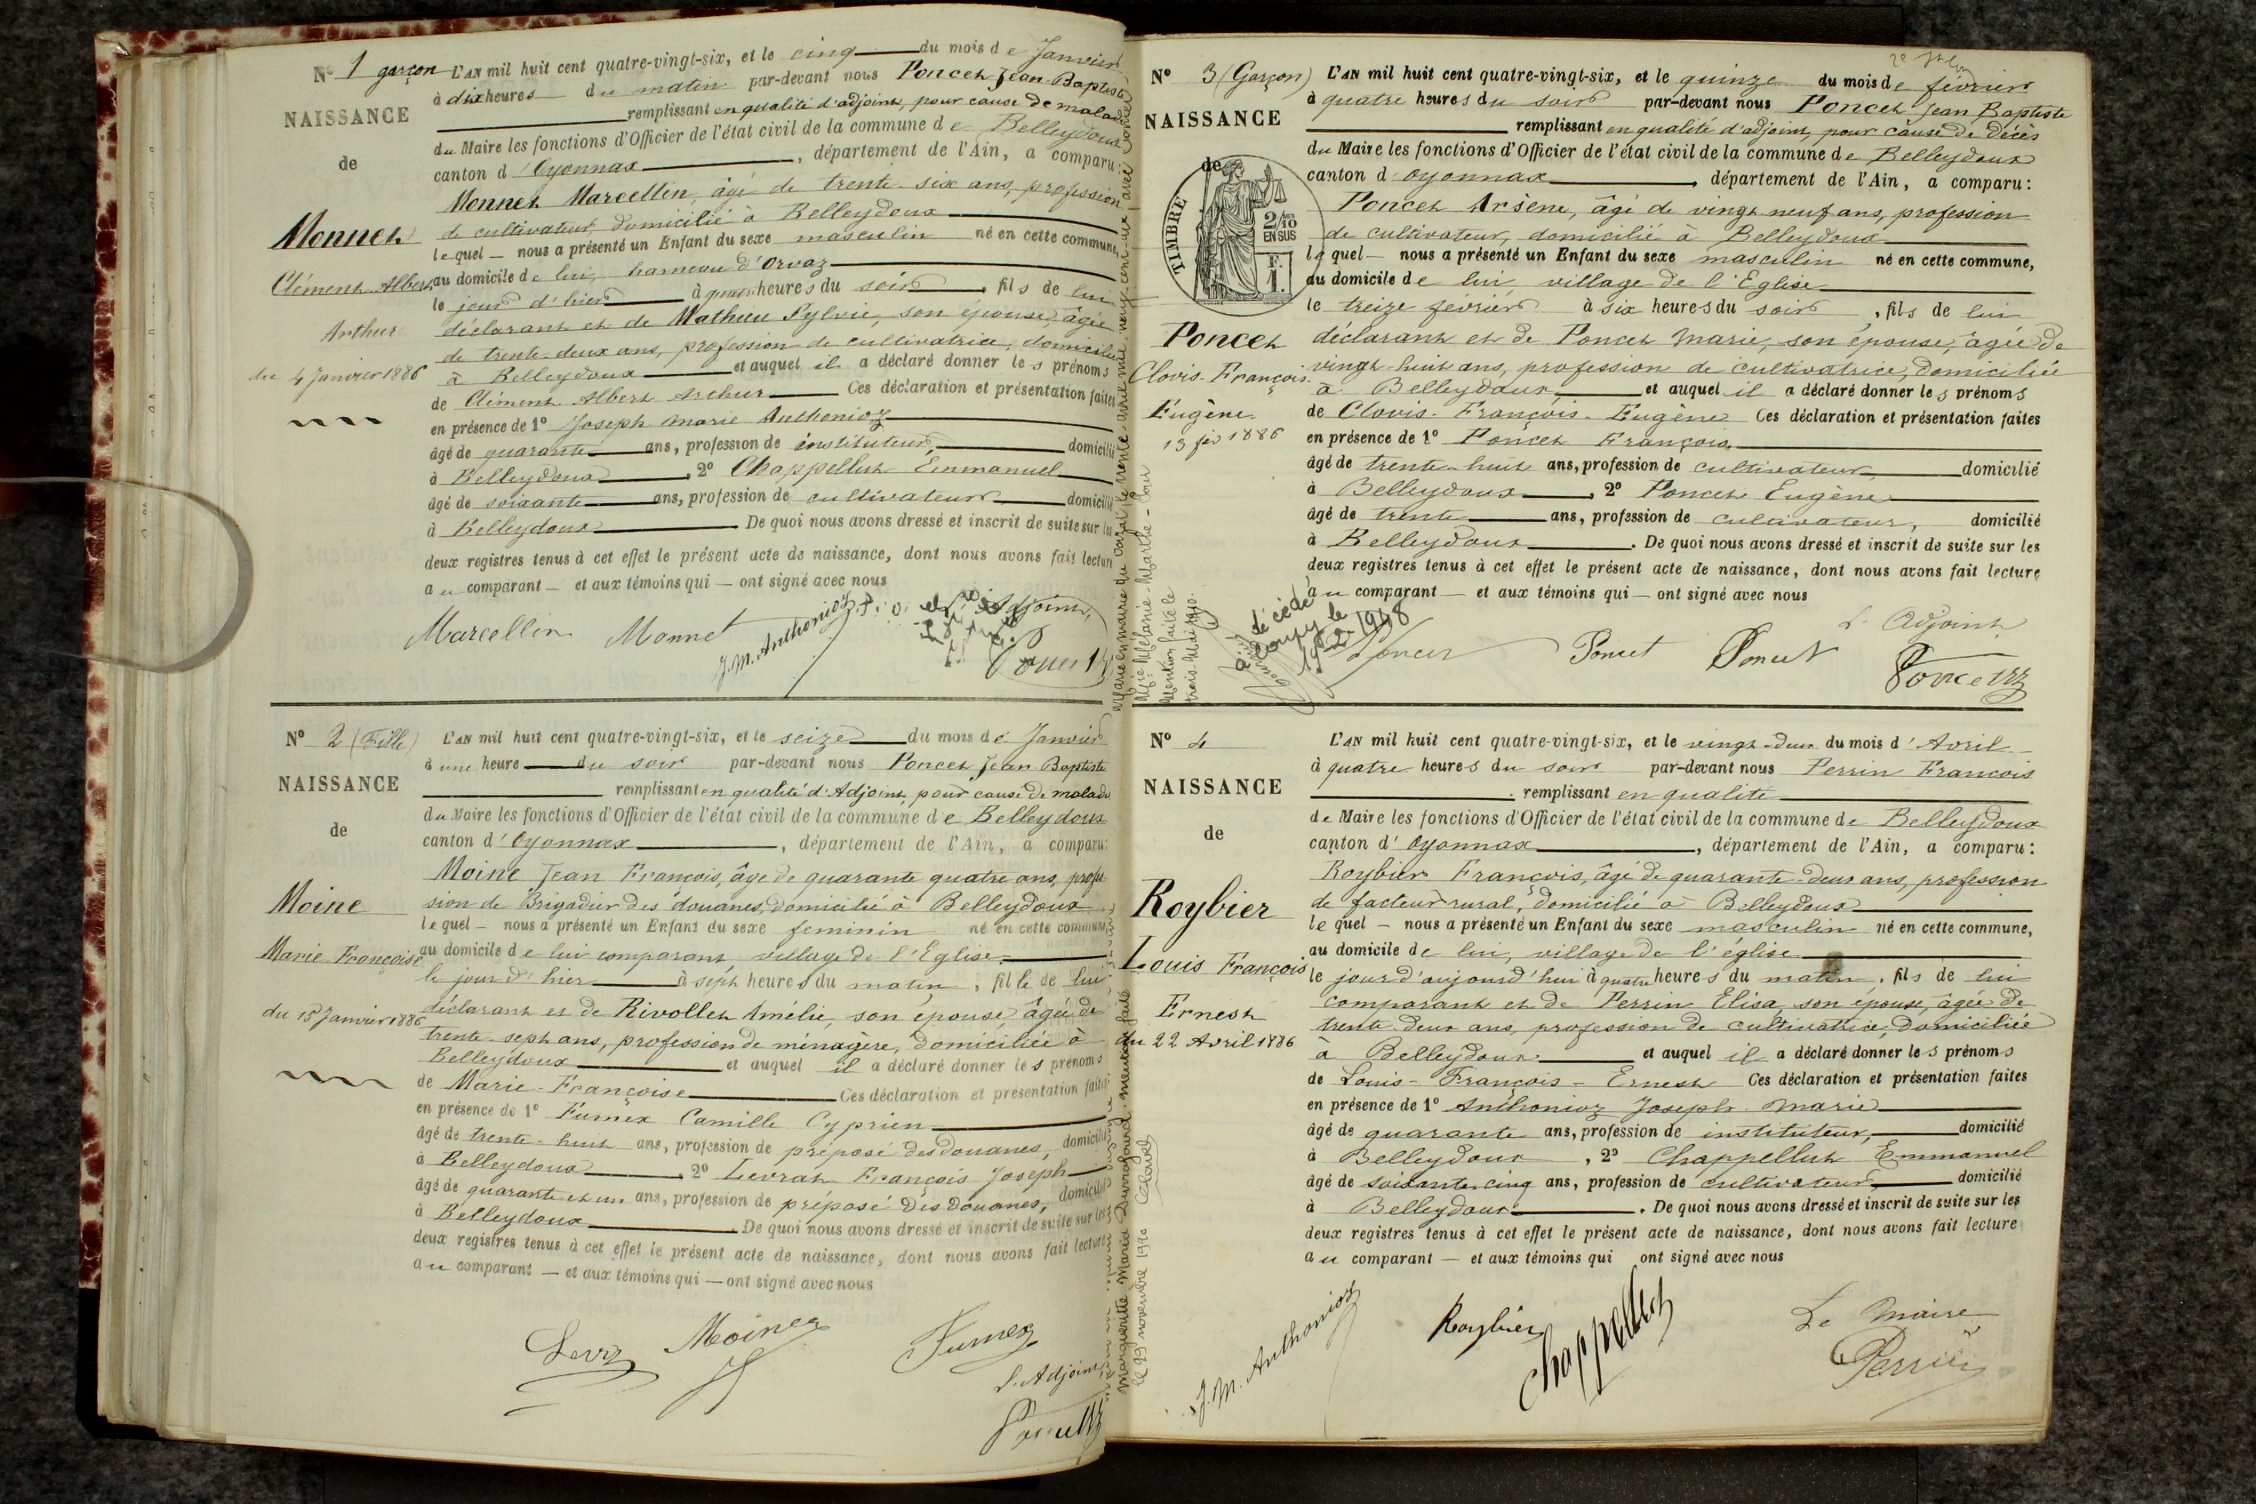 N° 1 garçon
NAISSANCE
de
Monnet
Clément Albert
Arthur
du 4 Janvier 1886
L'AN mil huit cent quatre-vingt-six, et le cinq du mois de Janvier
à dix heures du matin par-devant nous Poncet Jean-Baptiste
remplissant en qualité d'adjoint, pour cause de maladie
du Maire les fonctions d'Officier de l'état civil de la commune de Belleydoux
canton d'Oyonnax, département de l'Ain, a comparu:
Monnet Marcellin, âgé de trente-six ans, profession
de cultivateur, domicilié à Belleydoux
lequel nous a présenté un Enfant du sexe masculin né en cette commune,
au domicile de lui, hameau d'Orvaz
le jour d'hier à heures du soir, fils de lui
déclarant et de Mathieu Sylvie, son épouse, âgée
de trente-deux ans, profession de cultivatrice, domiciliée
à Belleydoux et auquel il a déclaré donner les prénoms
de Clément Albert Arthur Ces déclaration et présentation faites
en présence de 1° Joseph Marie Anthonioz
âgé de quarante ans, profession de instituteur, domicilié
à Belleydoux, 2° Chappellut Emmanuel
âgé de soixante ans, profession de cultivateur domicilié
à Belleydoux De quoi nous avons dressé et inscrit de suite sur les
deux registres tenus à cet effet le présent acte de naissance, dont nous avons fait lecture
au comparant — et aux témoins qui — ont signé avec nous
Marcellin Monnet J.M. Anthonioz L'Adjoint,
Poncet
N° 2 (Fille)
NAISSANCE
de
Moine
Marie Françoise
du 15 Janvier 1886
L'AN mil huit cent quatre-vingt-six, et le seize du mois de Janvier
à une heure du soir par-devant nous Poncet Jean Baptiste
remplissant en qualité d'Adjoint, pour cause de maladie
du Maire les fonctions d'Officier de l'état civil de la commune de Belleydoux
canton d'Oyonnax, département de l'Ain, a comparu:
Moine Jean François, âgé de quarante quatre ans, profes-
sion de Brigadier des douanes, domicilié à Belleydoux
lequel — nous a présenté un Enfant du sexe feminin né en cette commune
au domicile de lui comparant village de l'Eglise.
le jour d'hier à sept heures du matin, fille de lui
déclarant et de Rivollet Amélie, son épouse âgée de
trente-sept ans, profession de ménagère, domiciliée à
Belleydoux et auquel il a déclaré donner les prénoms
de Marie-Françoise Ces déclaration et présentation faites
en présence de 1° Fumex Camille Cyprien
âgé de trente-huit ans, profession de préposé des douanes, domicilié
à Belleydoux, 2° Levrat François Joseph
âgé de quarante et un ans, profession de préposé des douanes, domicilié
à Belleydoux. De quoi nous avons dressé et inscrit de suite sur les
deux registres tenus à cet effet le présent acte de naissance, dont nous avons fait lecture
au comparant — et aux témoins qui — ont signé avec nous
Moine Fumex
L'Adjoint,
Poncet
N° 3 (Garçon)
NAISSANCE
de
TIMBRE
2/10
EN SUS
F.
1.
Poncet
Clovis-François
Eugène
13 fév 1886
L'AN mil huit cent quatre-vingt-six, et le quinze du mois de février
à quatre heures du soir par-devant nous Poncet Jean Baptiste
remplissant en qualité d'adjoint, pour cause de décès
du Maire les fonctions d'Officier de l'état civil de la commune de Belleydoux
canton d'oyonnax, département de l'Ain, a comparu:
Poncet Arsène, âgé de vingt neuf ans, profession
de cultivateur, domicilié à Belleydoux
lequel — nous a présenté un Enfant du sexe masculin né en cette commune,
au domicile de lui, village de l'Eglise
le treize février à six heures du soir, fils de lui
déclarant et de Poncet Marie, son épouse, âgée de
vingt-huit ans, profession de cultivatrice, domiciliée
à Belleydoux et auquel il a déclaré donner les prénoms
de Clovis-François-Eugène Ces déclaration et présentation faites
en présence de 1° Poncet François
âgé de trente-huit ans, profession de cultivateur domicilié
à Belleydoux, 2° Poncet Eugène
âgé de trente ans, profession de cultivateur, domicilié
à Belleydoux. De quoi nous avons dressé et inscrit de suite sur les
deux registres tenus à cet effet le présent acte de naissance, dont nous avons fait lecture
au comparant — et aux témoins qui — ont signé avec nous
décédé
le
1948
L'Adjoint
Poncet Poncet Poncet Poncet
N° 4
NAISSANCE
de
Roybier
Louis François
Ernest
du 22 Avril 1886
L'AN mil huit cent quatre-vingt-six, et le vingt-deux du mois d'Avril
à quatre heures du soir par-devant nous Perrin François
remplissant en qualité
de Maire les fonctions d'Officier de l'état civil de la commune de Belleydoux
canton d'Oyonnax, département de l'Ain, a comparu:
Roybier François, âgé de quarante-deux ans, profession
de facteur rural, domicilié à Belleydoux
lequel — nous a présenté un Enfant du sexe masculin né en cette commune,
au domicile de lui, village de l'église
le jour d'aujourd'hui à quatre heures du matin, fils de lui
comparant et de Perrin Elisa, son épouse, âgée de
trente deux ans, profession de cultivatrice, domiciliée
à Belleydoux et auquel il a déclaré donner les prénoms
de Louis-François-Ernest Ces déclaration et présentation faites
en présence de 1° Anthonioz Joseph-Marie
âgé de quarante ans, profession de instituteur, domicilié
à Belleydoux, 2° Chappellut Emmanuel
âgé de soixante-cinq ans, profession de cultivateur domicilié
à Belleydoux. De quoi nous avons dressé et inscrit de suite sur les
deux registres tenus à cet effet le présent acte de naissance, dont nous avons fait lecture
au comparant — et aux témoins qui ont signé avec nous
J.M. Anthonioz Roybier Chappellut
Le Maire
Perrin